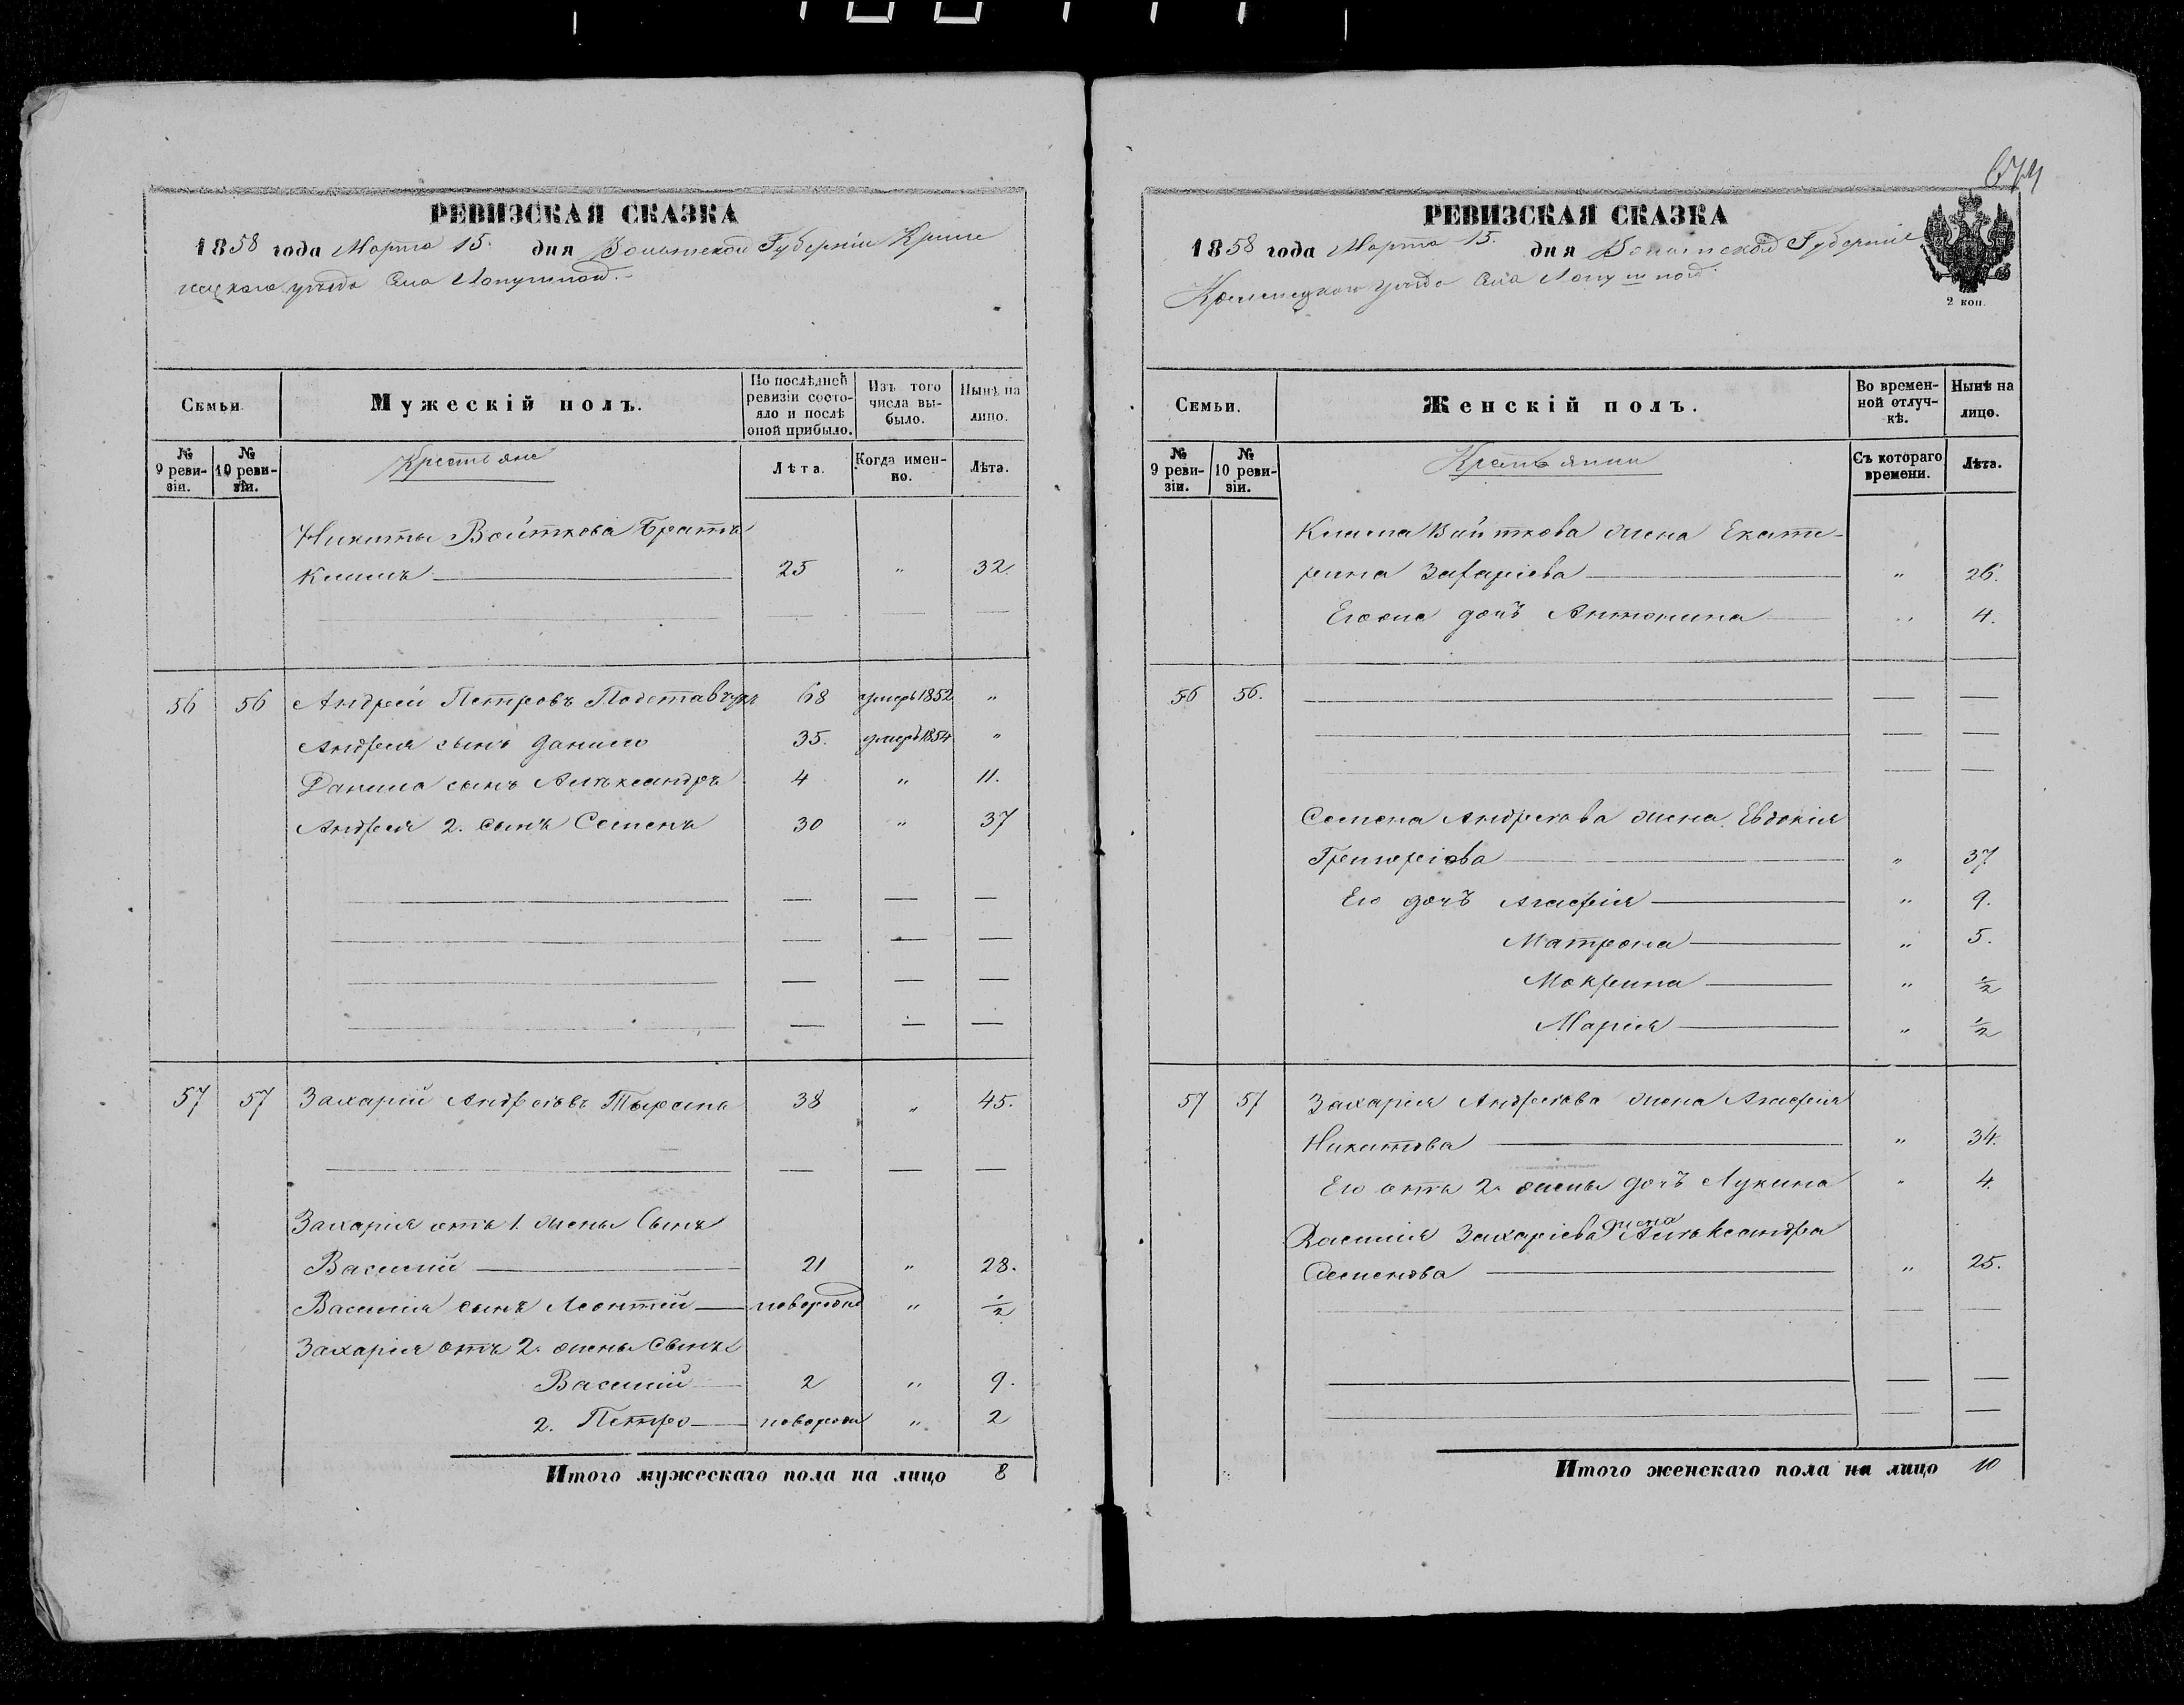 РЕВИЗСКАЯ СКАЗКА
1858 года Марта 15. дня Волынской Губерніи Креме
нецкаго уѣзда Села Лопушной.
Семьи.
Мужескій полъ.
По послѣдней ревизіи состо-
яло и послѣ оной прибыло.
Изъ того числа вы-
было.
Нынѣ на лицо.
№ 9 реви-
зіи.
№ 10 реви-
зіи.
Крестьяне
Лѣта.
Когда имен-
но.
Лѣта.
Никиты Войткова братъ
Климъ 25 " 32.
56 56 Андрей Петровъ Подставчукъ 68 умеръ 1852 "
Андрея сынъ Данило 35. умеръ 1854 "
Данила сынъ Алѣксандръ 4 " 11.
Андрея 2. сынъ Семенъ 30 " 37
57 57 Захарій Андрѣевъ 38 " 45.
Захарія отъ 1. жены Сынъ
Василій 21 " 28.
Василія сынъ Леонтій новорожд " 1/2
Захарія отъ 2. жены Сынъ
Василій 2 " 9.
2. Петро новорож " 2
Итого мужескаго пола на лицо 8
РЕВИЗСКАЯ СКАЗКА
1858 года Марта 15. дня Волынской Губерніи
Кременецкаго Уѣзда Села Лопушной
2 коп.
Семьи.
Женскій полъ.
Во времен-
ной отлуч-
кѣ.
Нынѣ на лицо.
№ 9 реви-
зіи.
№ 10 реви-
зіи.
Крестьянки
Съ котораго времени.
Лѣта.
Клима Войткова жена Екате-
рина Захаріева " 26.
Егоже дочъ Антонина " 4.
56 56.
Семена Андреева жена Евдокія
Григоріева " 37
Его дочъ Агафія " 9.
Матрона " 5.
Мокрина " 1/2
Марія " 1/2
57 57 Захарія Андреева жена Агафія
Никитова " 34.
Его отъ 2. жены дочъ Лукина " 4.
Василія Захаріева жена Алѣксандра
Семенова " 25.
Итого женскаго пола на лицо 10